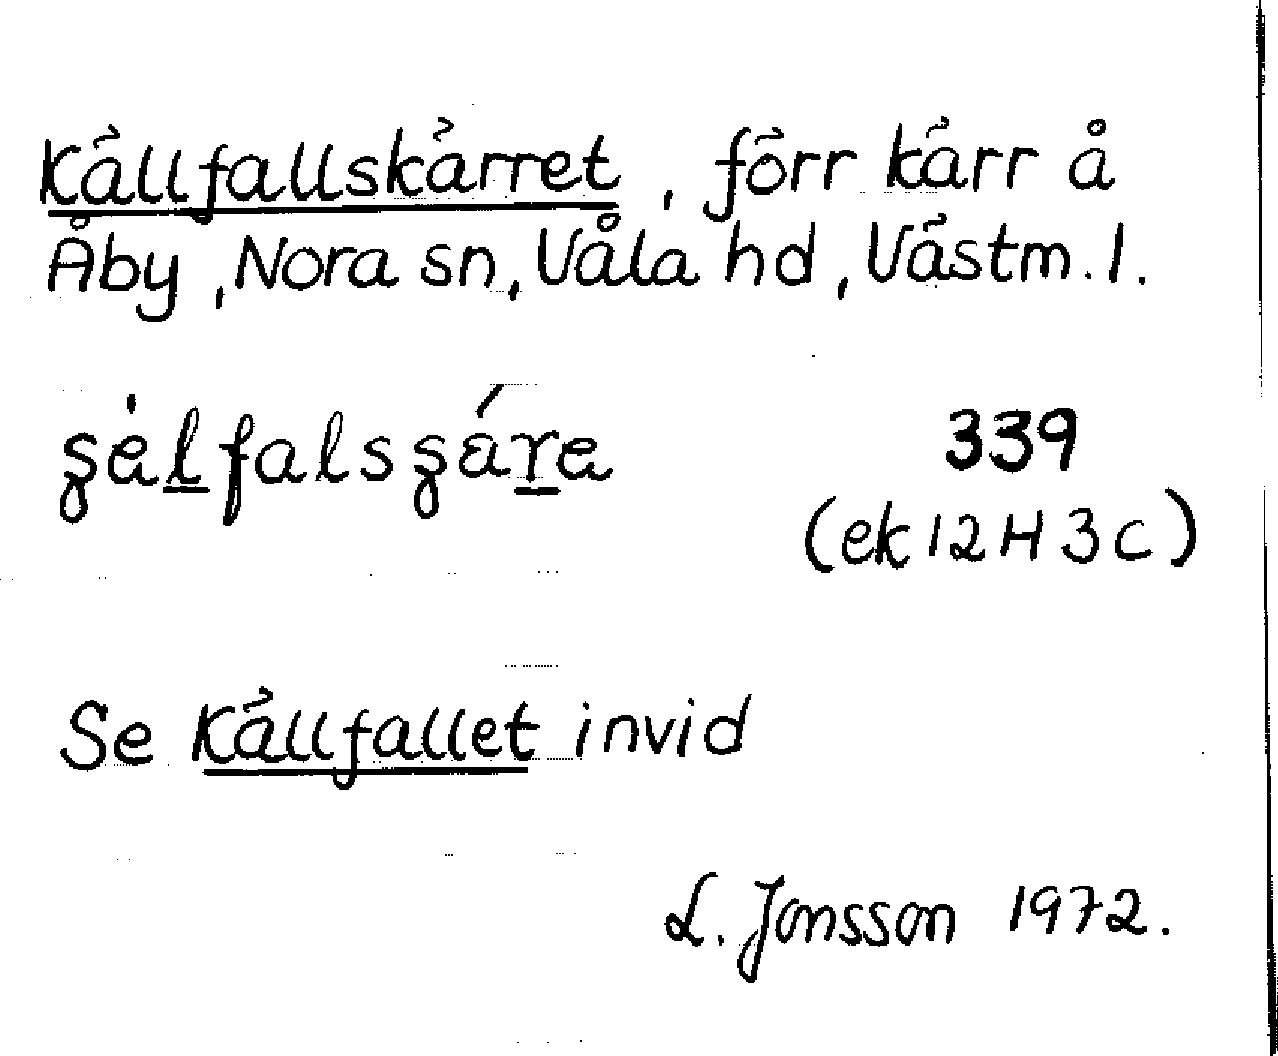 Källfallskärret, förr kärr å
Åby, Nora sn, Våla hd, Västm. l.
339
(ek 12 H 3 c)
Se Källfallet invid
L. Jonsson 1972.